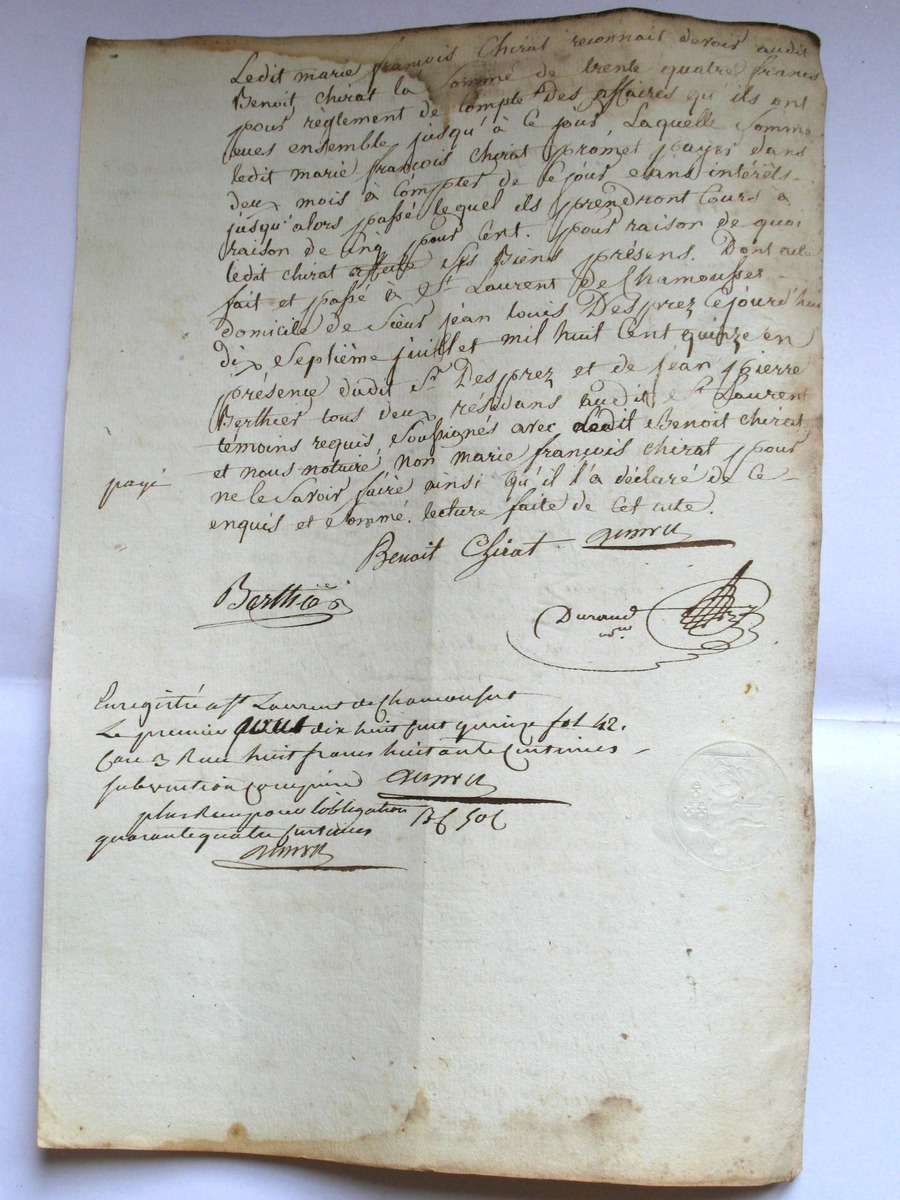 Ledit marie françois Chirat reconnait devoir audit
Benoit chirat la Somme de trente quatre francs
pour règlement de Compte Des affaires qu'ils ont
eues ensemble jusqu'à ce jour, Laquelle Somme
ledit marie françois chirat promet payer dans
deux mois à compter de ce jour sans intérêts
jusqu'alors passé lequel ils prendront Cours à
raison de cinq pour Cent. pour raison de quoi
ledit chirat affecte Ses Biens présens. Dont acte
fait et passé à St Laurent de Chamousset
domicile de Sieur jean louis Desprez Cejourd'hui
dix Septième juillet mil huit Cent quinze en
présence dudit Sr Desprez et de Jean pierre
Berthier tous deux résidans audit St Laurent
témoins requis, Soussignés avec Ledit Benoit chirat
et nous notaire, non marie françois chirat pour
payé
ne le Savoir faire ainsi qu'il l'a déclaré de ce
enquis et Sommé. lecture faite de Cet acte.
Benoit Chirat
Berthier
Durand
Enregistré a St Laurent de Chamousset
Le premier aout dix huit cent quinze fol 42.
Case 3 Recu huit francs huitante Centimes
subvention comprise
plus Recu pour l'obligation
quarante quatre Centimes